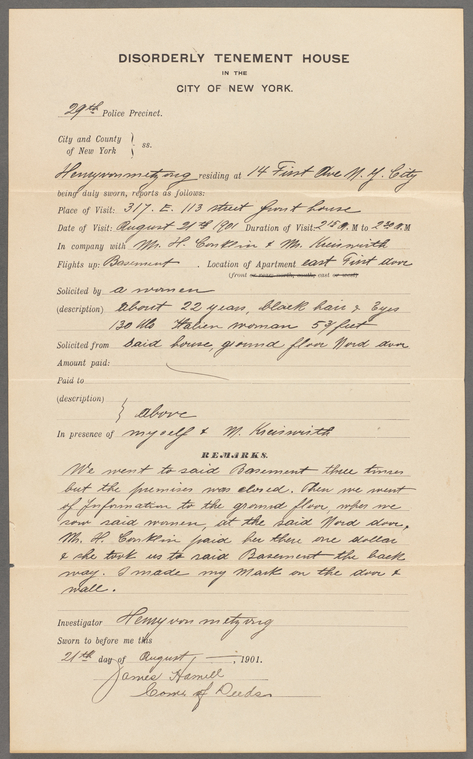 DISORDERLY TENEMENT HOUSE
IN THE
CITY OF NEW YORK.
29th Police Precinct.
City and County
of New York } ss.
Henry von metzing residing at 14 First Ave N. Y. City
being duly sworn, reports as follows:
Place of Visit: 317. E. 113 street front house
Date of Visit: August 21th 1901 Duration of Visit: M to M
In company with Mr. H. Conklin & M. Kreiswirth
Flights up: Basement . Location of Apartment east First door
(front or rear, north, south, east or west)
Solicited by a women
(description) about 22 years, black hair & Eyes
130 lbs Italien woman 5 feet
Solicited from said house, ground floor Nord door
Amount paid:
Paid to
(description)
} above
In presence of myself & M. Kreiswirth
REMARKS.
We went to said Basement three times
but the premises was closed. Then we went
of Information to the ground floor, wher we
sow said women, at the said Nord door,
Mr. H. Conklin paid her there one dollar
& she took us to said Basement the back
way. I made my Mark on the door &
wall.
Investigator Henry von metzing
Sworn to before me this
21th day of August, 1901.
James Hamill
Comr of Deeds